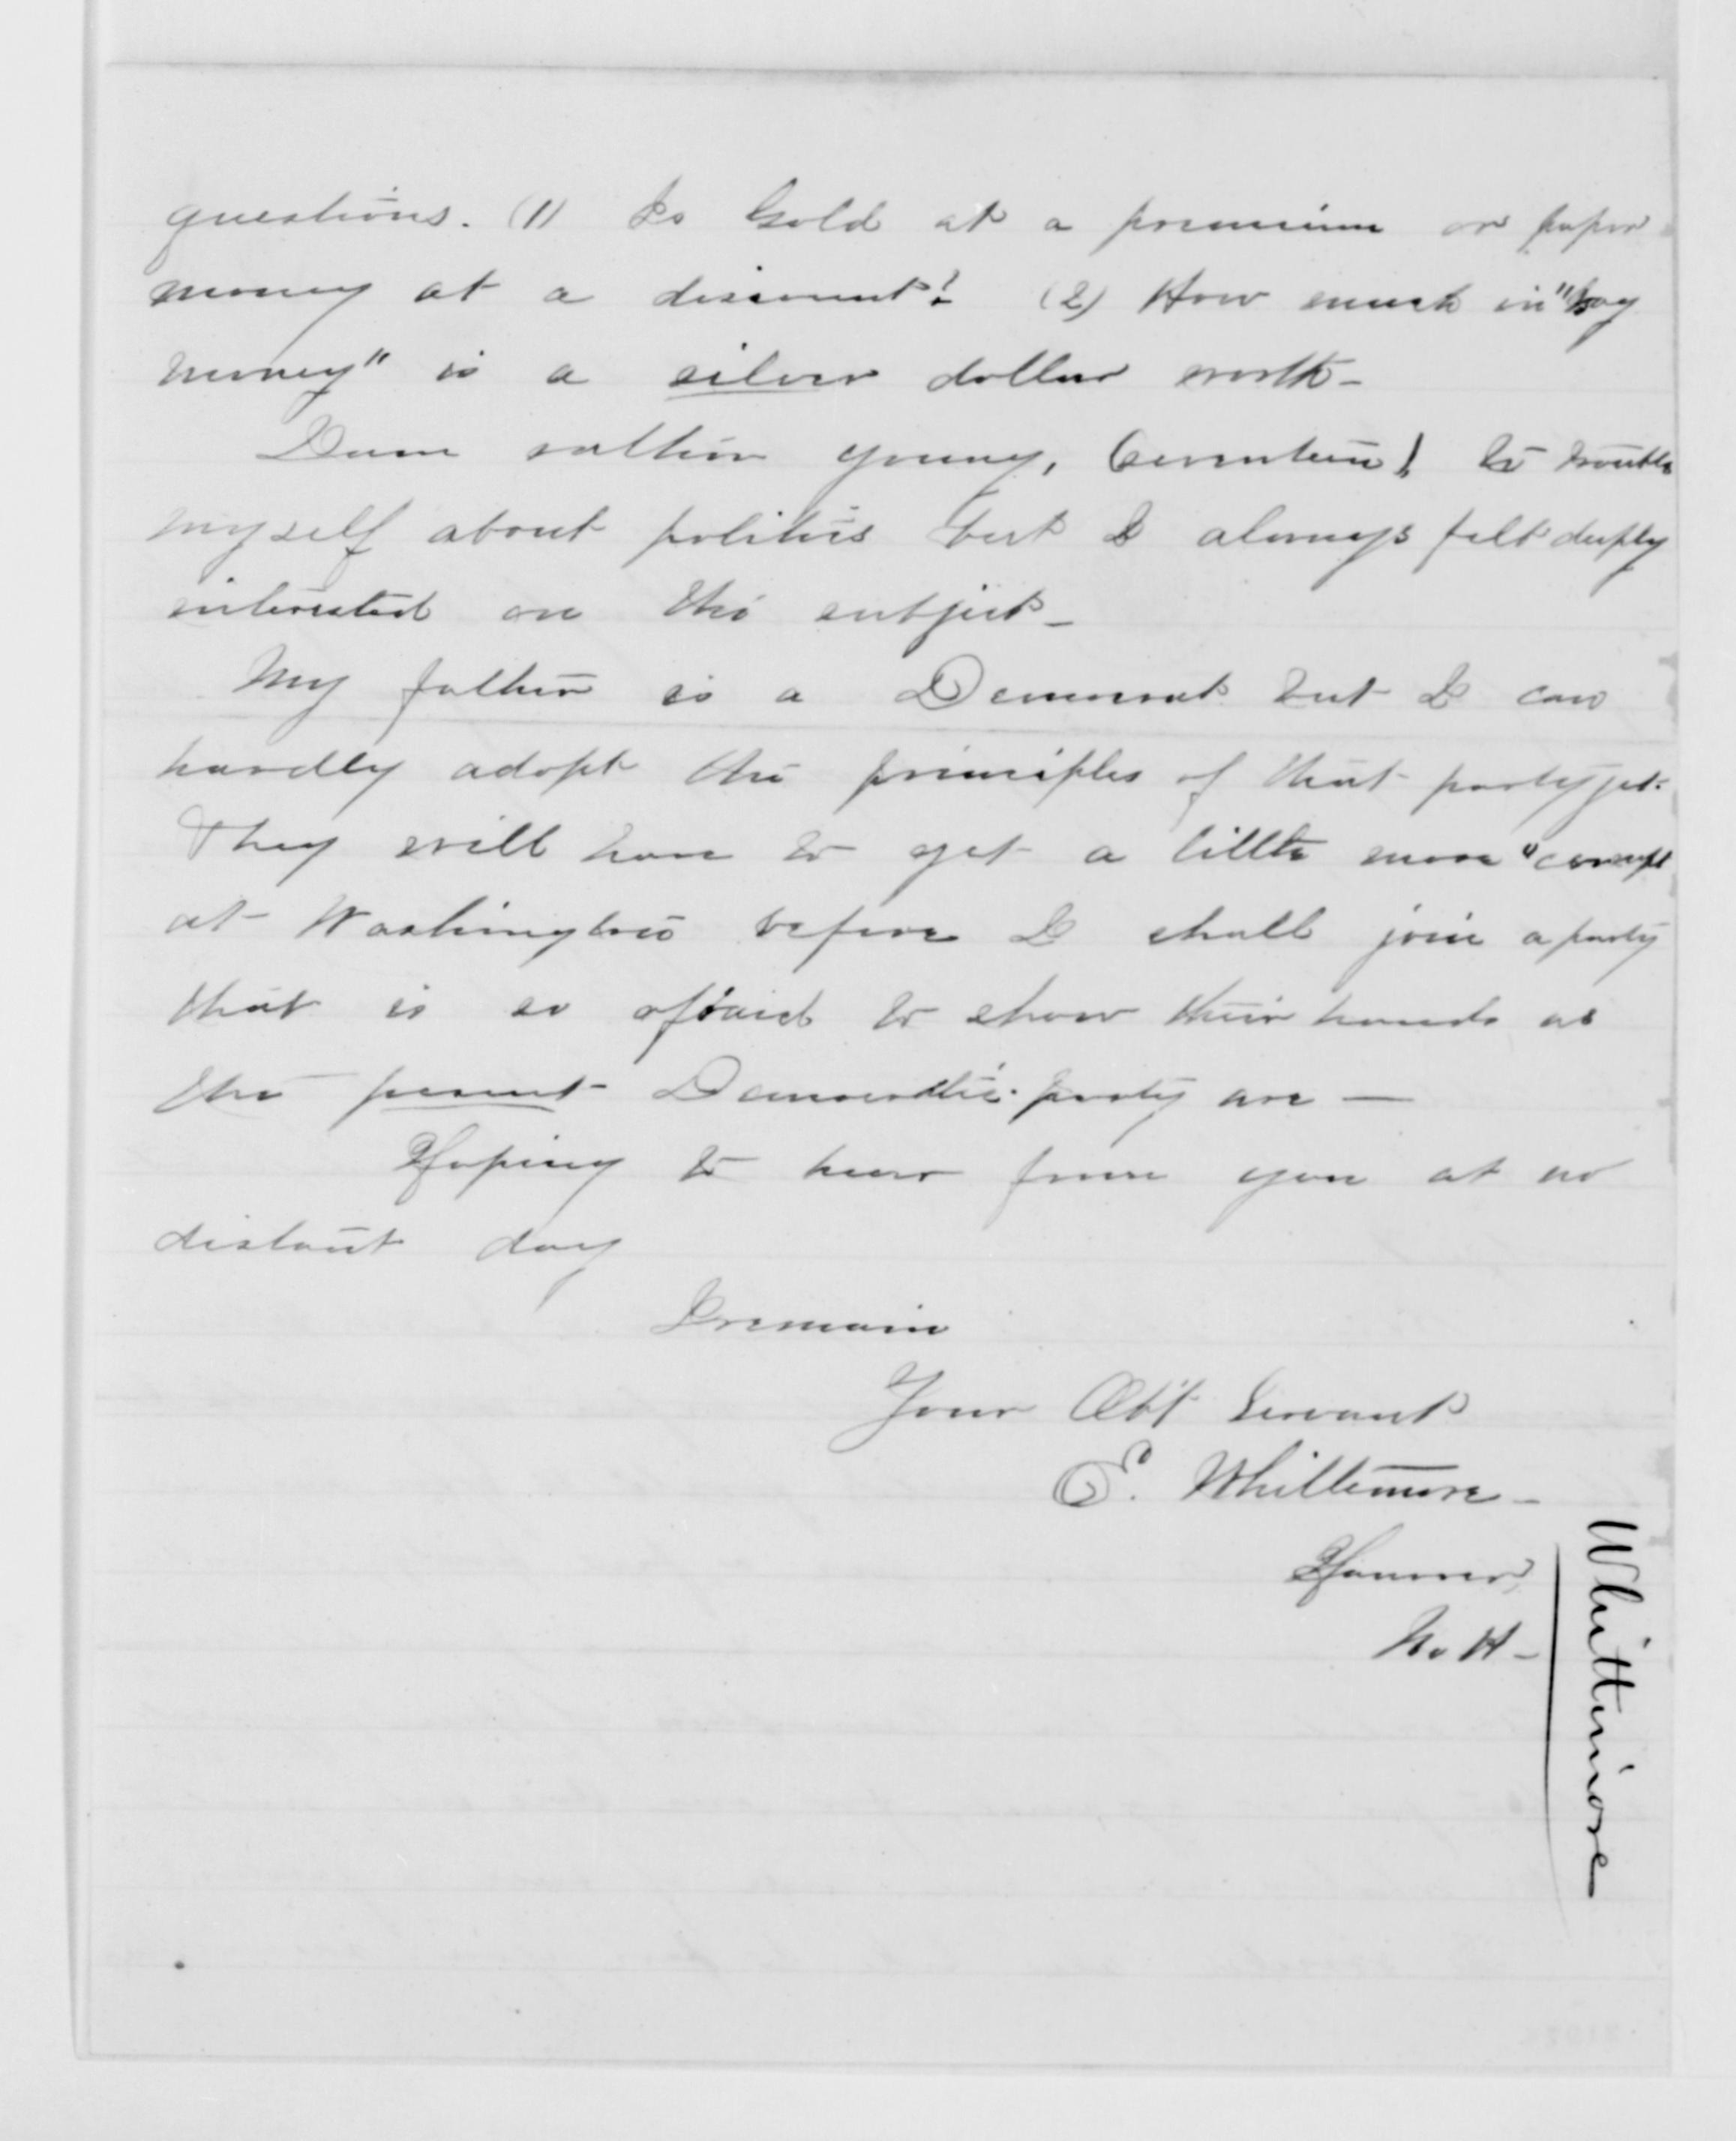 questions. (1) Is Gold at a premium or paper
money at a discount? (2) How much in "hay
money" is a silver dollar worth-
I am rather young, (seventeen) to trouble
myself about politics but I always felt deeply
interested on the subject-
My father is a Democrat but I can
hardly adopt the principles of that party yet.
They will have to get a little more "corrupt
at Washington before I shall join a party
that is so afraid to show their hands as
the present Democratic party are-
Hoping to hear from you at no
distant day
I remain
Your Obt Servant
E. Whittemore-
Hanover
N. H-
Whittimore